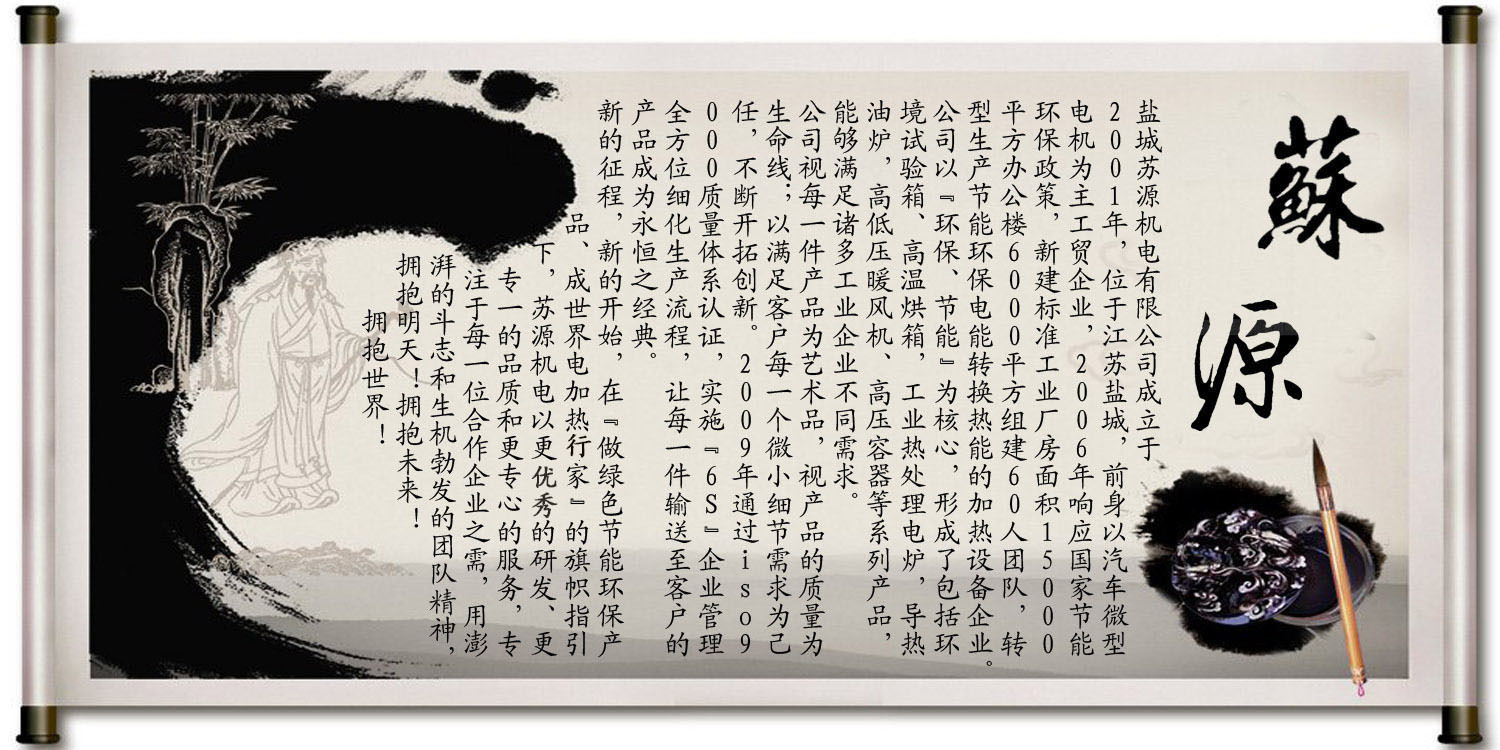 蘇源
盐城苏源机电有限公司成立于
2001年，位于江苏盐城，前身以汽车微型
电机为主工贸企业，2006年响应国家节能
环保政策，新建标准工业厂房面积15000
平方办公楼6000平方组建60人团队，转
型生产节能环保电能转换热能的加热设备企业。
公司以『环保、节能』为核心，形成了包括环
境试验箱、高温烘箱，工业热处理电炉，导热
油炉，高低压暖风机、高压容器等系列产品，
能够满足诸多工业企业不同需求。
公司视每一件产品为艺术品，视产品的质量为
生命线；以满足客户每一个微小细节需求为己
任，不断开拓创新。2009年通过iso9
000质量体系认证，实施『6S』企业管理
全方位细化生产流程，让每一件输送至客户的
产品成为永恒之经典。
新的征程，新的开始，在『做绿色节能环保产
品、成世界电加热行家』的旗帜指引
下，苏源机电以更优秀的研发、更
专一的品质和更专心的服务，专
注于每一位合作企业之需，用澎
湃的斗志和生机勃发的团队精神，
拥抱明天！拥抱未来！
拥抱世界！